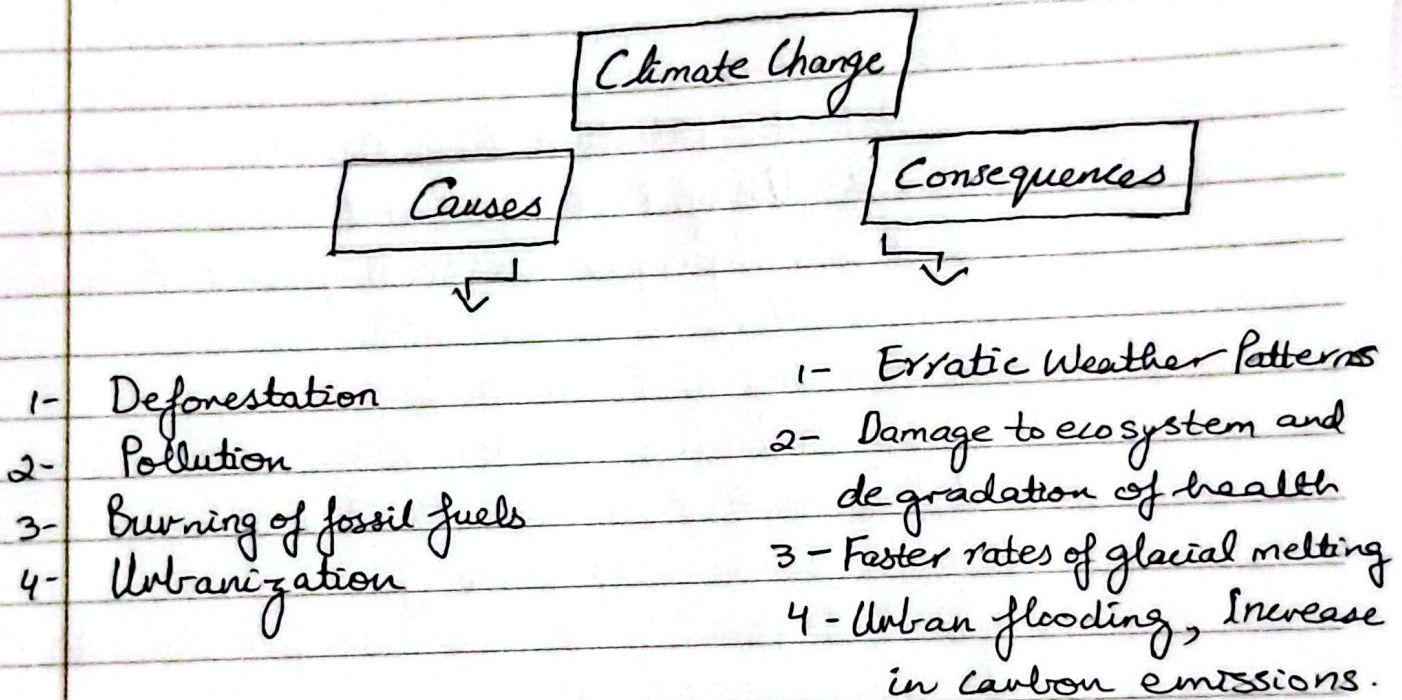 Climate Change
Causes
Consequences
1- Deforestation
2- Pollution
3- Burning of fossil fuels
4- Urbanization
1- Erratic Weather Patterns
2- Damage to ecosystem and
degradation of health
3- Faster rates of glacial melting
4- Urban flooding, Increase
in carbon emissions.